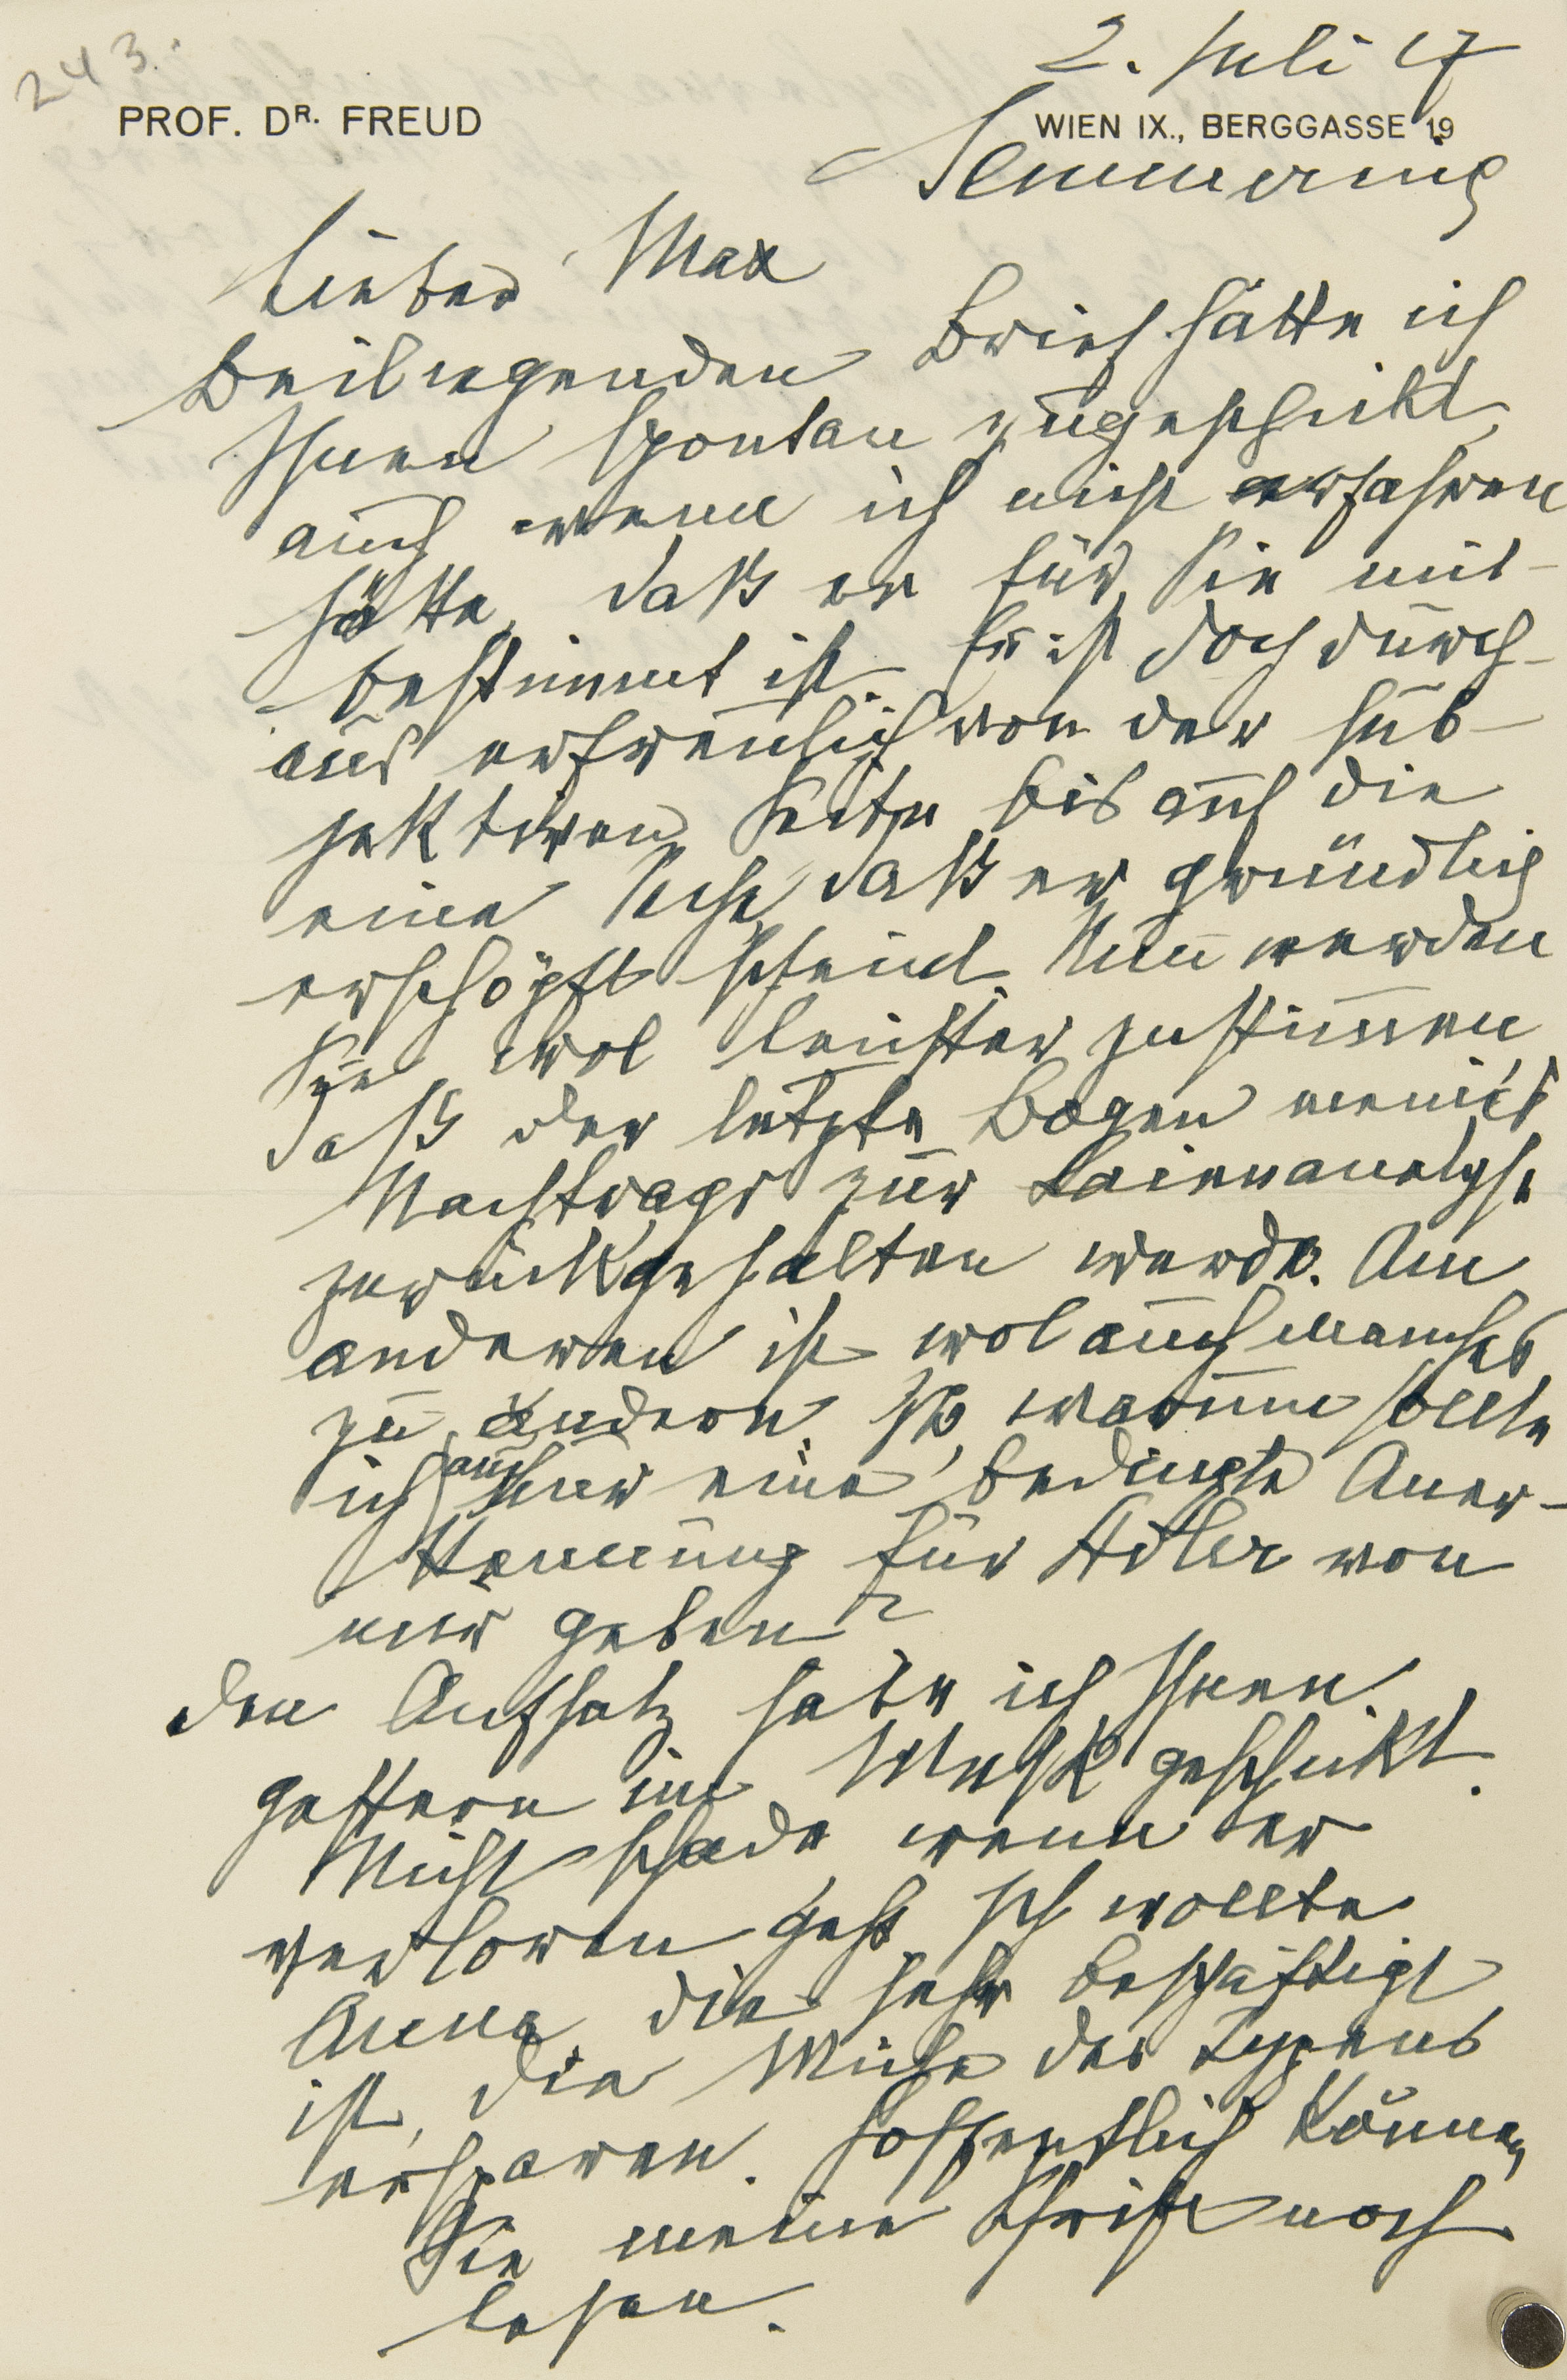 243.
2. Juli 27
PROF. DR. FREUD
WIEN IX., BERGGASSE 19
Semmering
Lieber Max
Beiliegenden Brief hätte ich
Ihnen spontan zugeschickt,
auch wenn ich nicht erfahren
hätte, daß er für Sie mit-
bestimmt ist. Er ist doch durch-
aus erfreulich von der sub-
jektiven Seite bis auf die
eine, daß er gründlich
erschöpft scheint. Nun werden
Sie wol leichter zustimmen
daß der letzte Bogen meines
Nachtrags zur Laienanalyse
zurückgehalten werde. Am
anderen ist wol auch manches
zu ändern. Zb, warum sollte
ich auch nur eine bedingte Aner-
kennung für Adler von
mir geben?
Den Aufsatz habe ich Ihnen
gestern im Mskr geschickt.
Nicht schade wenn er
verloren geht. Ich wollte
Anna, die sehr beschäftigt
ist, die Mühe des Typens
ersparen. Hoffentlich können
Sie meine Schrift noch
lesen.